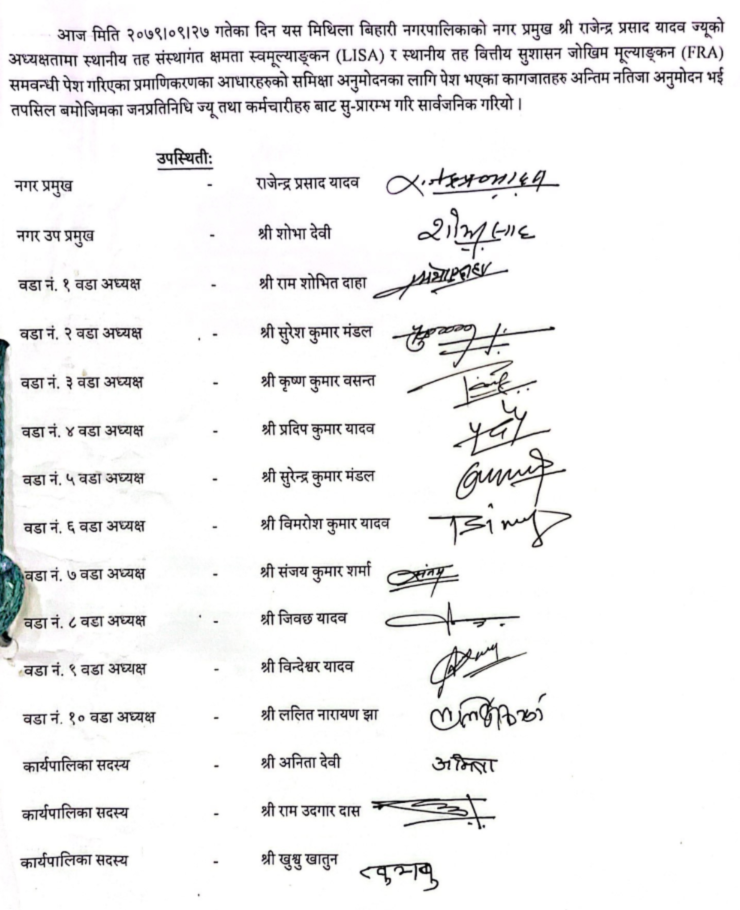 आज मिति २०७९।०९।२७ गतेका दिन यस मिथिला बिहारी नगरपालिकाको नगर प्रमुख श्री राजेन्द्र प्रसाद यादव ज्यूको
अध्यक्षतामा स्थानीय तह संस्थागत क्षमता स्वमूल्याङ्कन (LISA) र स्थानीय तह वित्तीय सुशासन जोखिम मूल्याङ्कन (FRA)
समवन्धी पेश गरिएका प्रमाणिकरणका आधारहरुको समिक्षा अनुमोदनका लागि पेश भएका कागजातहरु अन्तिम नतिजा अनुमोदन भई
तपसिल बमोजिमका जनप्रतिनिधि ज्यू तथा कर्मचारीहरु बाट सु-प्रारम्भ गरि सार्वजनिक गरियो ।
उपस्थितीः
नगर प्रमुख - राजेन्द्र प्रसाद यादव
नगर उप प्रमुख - श्री शोभा देवी
वडा नं. १ वडा अध्यक्ष - श्री राम शोभित दाहा
वडा नं. २ वडा अध्यक्ष - श्री सुरेश कुमार मंडल
वडा नं. ३ वडा अध्यक्ष - श्री कृष्ण कुमार वसन्त
वडा नं. ४ वडा अध्यक्ष - श्री प्रदिप कुमार यादव
वडा नं. ५ वडा अध्यक्ष - श्री सुरेन्द्र कुमार मंडल
वडा नं. ६ वडा अध्यक्ष - श्री विमरोश कुमार यादव
वडा नं. ७ वडा अध्यक्ष - श्री संजय कुमार शर्मा
वडा नं. ८ वडा अध्यक्ष - श्री जिवछ यादव
वडा नं. ९ वडा अध्यक्ष - श्री विन्देश्वर यादव
वडा नं. १० वडा अध्यक्ष - श्री ललित नारायण झा
कार्यपालिका सदस्य - श्री अनिता देवी अनिता
कार्यपालिका सदस्य - श्री राम उदगार दास
कार्यपालिका सदस्य - श्री खुश्बु खातुन